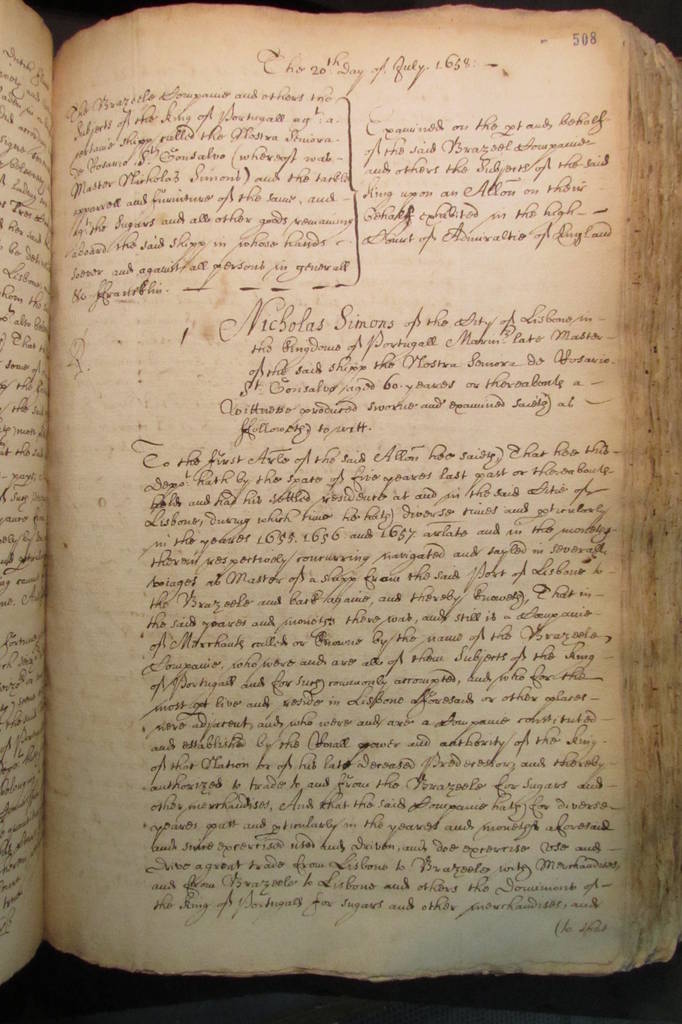 508
The 20th Day of July. 1658.
The Brazeele Companie and others the
Subjects of the King of Portugall agt: a
shipp called the Nostra Seniora
de Rosario St. Gonsalvo (whereof was
Master Nicholas Simons) and the tackle
apparrell and furniture of the same, and
agt the Sugars and all other goods remaining
aboard the said shipp in whose hands
soever and against all persons in generall
&c ffrancklin.
Examined on the pt and behalfe
of the said Brazeel Companie
and others the Subjects of the said
King upon an Allon on their
behalfe exhibited in the high
Court of Admiraltie of England
1
Nicholas Simons of the City of Lisbone in
the Kingdome of Portugall Marinr late Master
of the said shipp the Nostra Senora de Rosario
St. Gonsalvo aged 60 yeares or thereabouts a
Wittnesse produced sworne and examined saieth as
followeth to witt.
To the first Arle of the said Allon hee saieth That hee this
depot hath by the space of five yeares last past or thereabouts
held and had his setled residence at and in the said Citie of
Lisbone, during which time he hath diverse times and pticularly
in the yeares 1655. 1656 and 1657 arlate and in the moneths
therein respectively concurring navigated and sayled in severall
voiages as Master of a shipp from the said Port of Lisbone to
the Brazeele and back againe, and thereby knoweth, That in
the said yeares and moneths there was, and still is a Companie
of Merchants called or knowne by the name of the Brazeele
Companie, who were and are all of them Subjects of the King
of Portugall and for such commonly accompted, and who for the
most pt live and reside in Lisbone aforesaid or other places
neere adjacent, and who were and are a Companie constituted
and established by the Royall power and authority of the King
of that Nation or of his late deceased Predecessor, and thereby
authorized to trade to and from the Brazeele for Sugars and
other merchandises, And that the said Companie hath for diverse
yeares past and pticularly in the yeares and moneths aforesaid
and since excercised used and driven, and doe excercise use and
drive a great trade from Lisbone to Brazeele with Merchandises
and from Brazeele to Lisbone and others the Dominions of
the King of Portugall for sugars and other merchandises, and